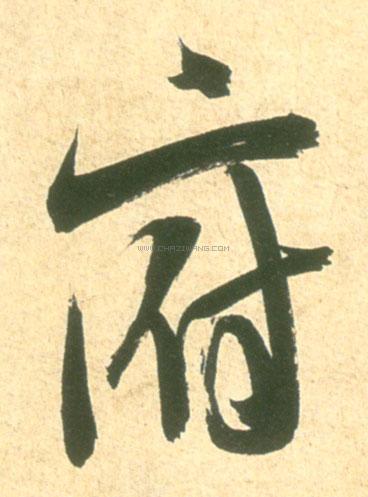 府
WWW.CHAZIWANG.COM